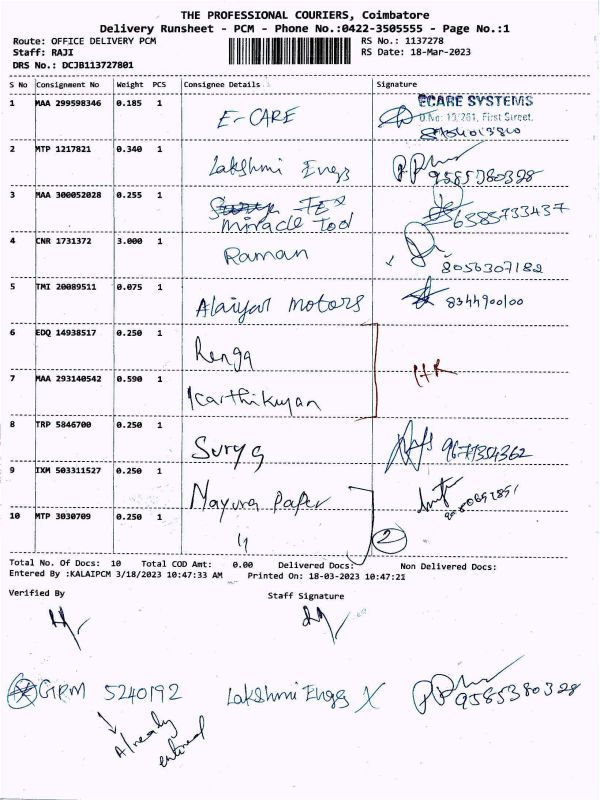 THE PROFESSIONAL COURIERS, Coimbatore
Delivery Runsheet - PCM - Phone No.:0422-3505555 - Page No.:1
Route: OFFICE DELIVERY PCM RS No.: 1137278
Staff: RAJI RS Date: 18-Mar-2023
DRS No.: DCJB113727801
S No Consignment No Weight PCS Consignee Details Signature
1 MAA 299598346 0.185 1 E-CARE ECARE SYSTEMS
First Street,
2 MTP 1217821 0.340 1 Lakshmi Engs 9585380328
3 MAA 300052028 0.255 1 TEX
miracle tool 6385733437
4 CNR 1731372 3.000 1 Raman
8056307182
5 TMI 20089511 0.075 1 Alaiyar motors 8344900100
6 EDQ 14938517 0.250 1 Renga
HR
7 MAA 293140542 0.590 1 Karthikuyan
8 TRP 5846700 0.250 1 Surya
9 IXM 503311527 0.250 1 Mayura Paper
10 MTP 3030709 0.250 1 " 2
Total No. Of Docs: 10 Total COD Amt: 0.00 Delivered Docs: Non Delivered Docs:
Entered By :KALAIPCM 3/18/2023 10:47:33 AM Printed On: 18-03-2023 10:47:21
Verified By Staff Signature
GRM 5240192 Lakshmi Engs X 9585380328
Already
entered